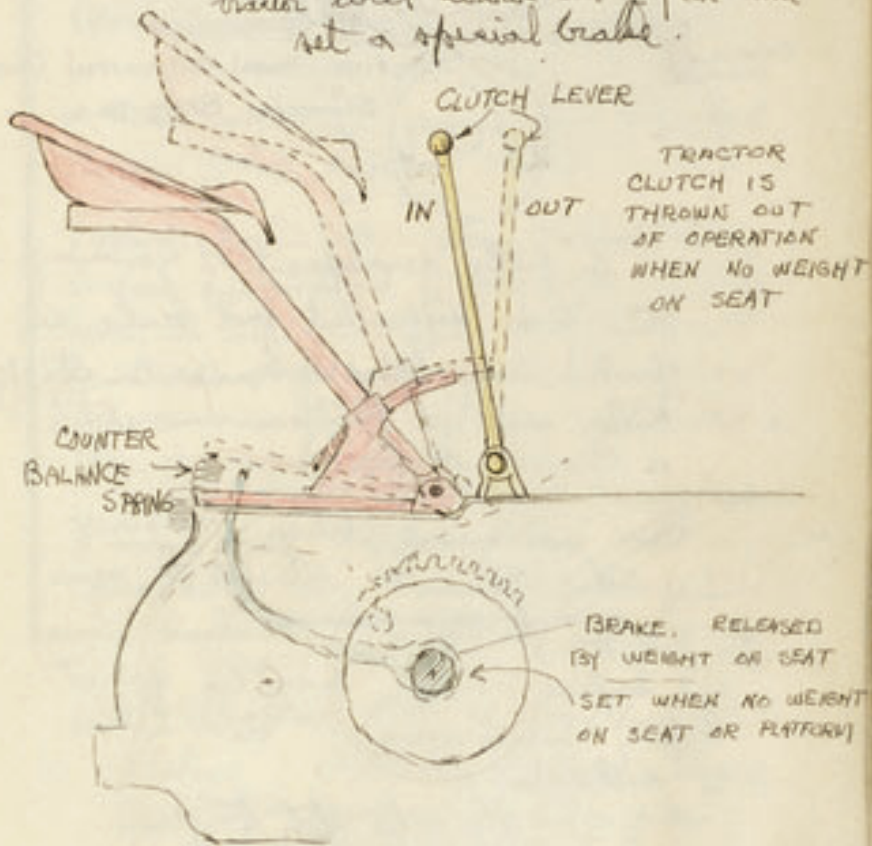 set a special brake.
CLUTCH LEVER
IN
OUT
TRACTOR
CLUTCH IS
THROWN OUT
OF OPERATION
WHEN NO WEIGHT
ON SEAT
COUNTER
BALANCE
SPRING
BRAKE. RELEASED
BY WEIGHT ON SEAT
SET WHEN NO WEIGHT
ON SEAT OR PLATFORM